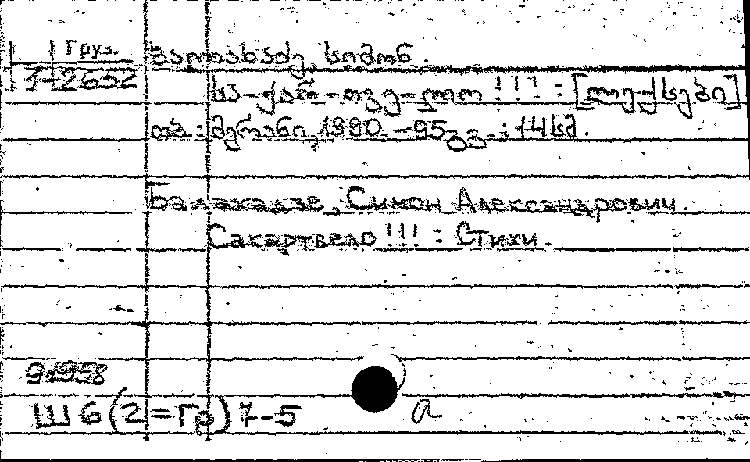 Груз. ბალახაძე, სიმონ.
1-2652
სა-ქარ-თვე-ლო!!! : [ლექსები]
თბ.: მერანი, 1990. -95 გვ. ; 14 სმ.
Балахадзе, Симон Александрович.
Сакартвело!!! : Стихи.
91958
Ш 6 (2=Гр) 7-5 а